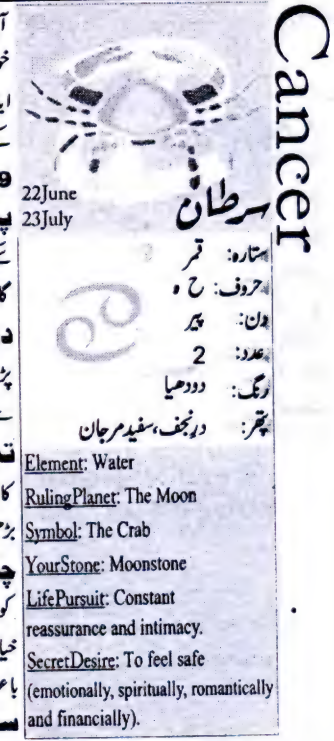 Cancer
22June
23July
سرطان
ستارہ: قمر
حروف: ح ہ
دن: پیر
عدد: 2
رنگ: دودھیا
پتھر: درنجف، سفید مرجان
Element: Water
RulingPlanet: The Moon
Symbol: The Crab
YourStone: Moonstone
LifePursuit: Constant
reassurance and intimacy.
SecretDesire: To feel safe
(emotionally, spiritually, romantically
and financially).